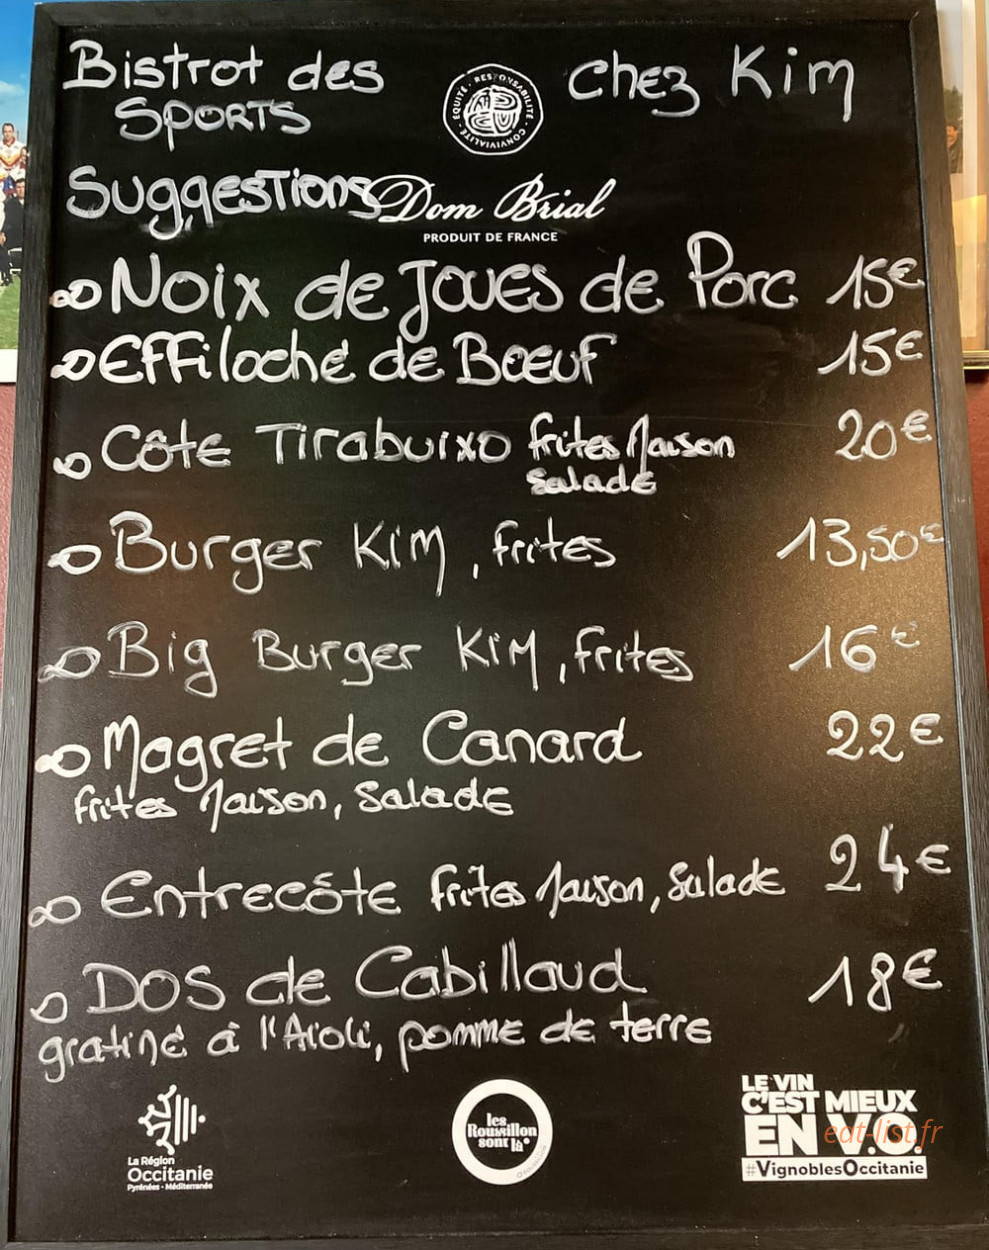 Bistrot des
SPORTS
Chez Kim
ÉQUITÉ · RESPONSABILITÉ · CONVIVIALITÉ
Suggestions
Dom Brial
PRODUIT DE FRANCE
Noix de Joues de Porc 15€
Effiloché de Bœuf 15€
Côte Tirabuixo frites Maison 20€
Salade
Burger KIM, frites 13,50€
Big Burger KIM, frites 16€
Magret de Canard 22€
frites Maison, Salade
Entrecôte frites Maison, Salade 24€
DOS de Cabillaud 18€
gratiné à l'Aïoli, pomme de terre
La Région
Occitanie
Pyrénées - Méditerranée
les
Roussillon
sont là
LE VIN
C'EST MIEUX
EN V.O.
#VignoblesOccitanie
eat-list.fr